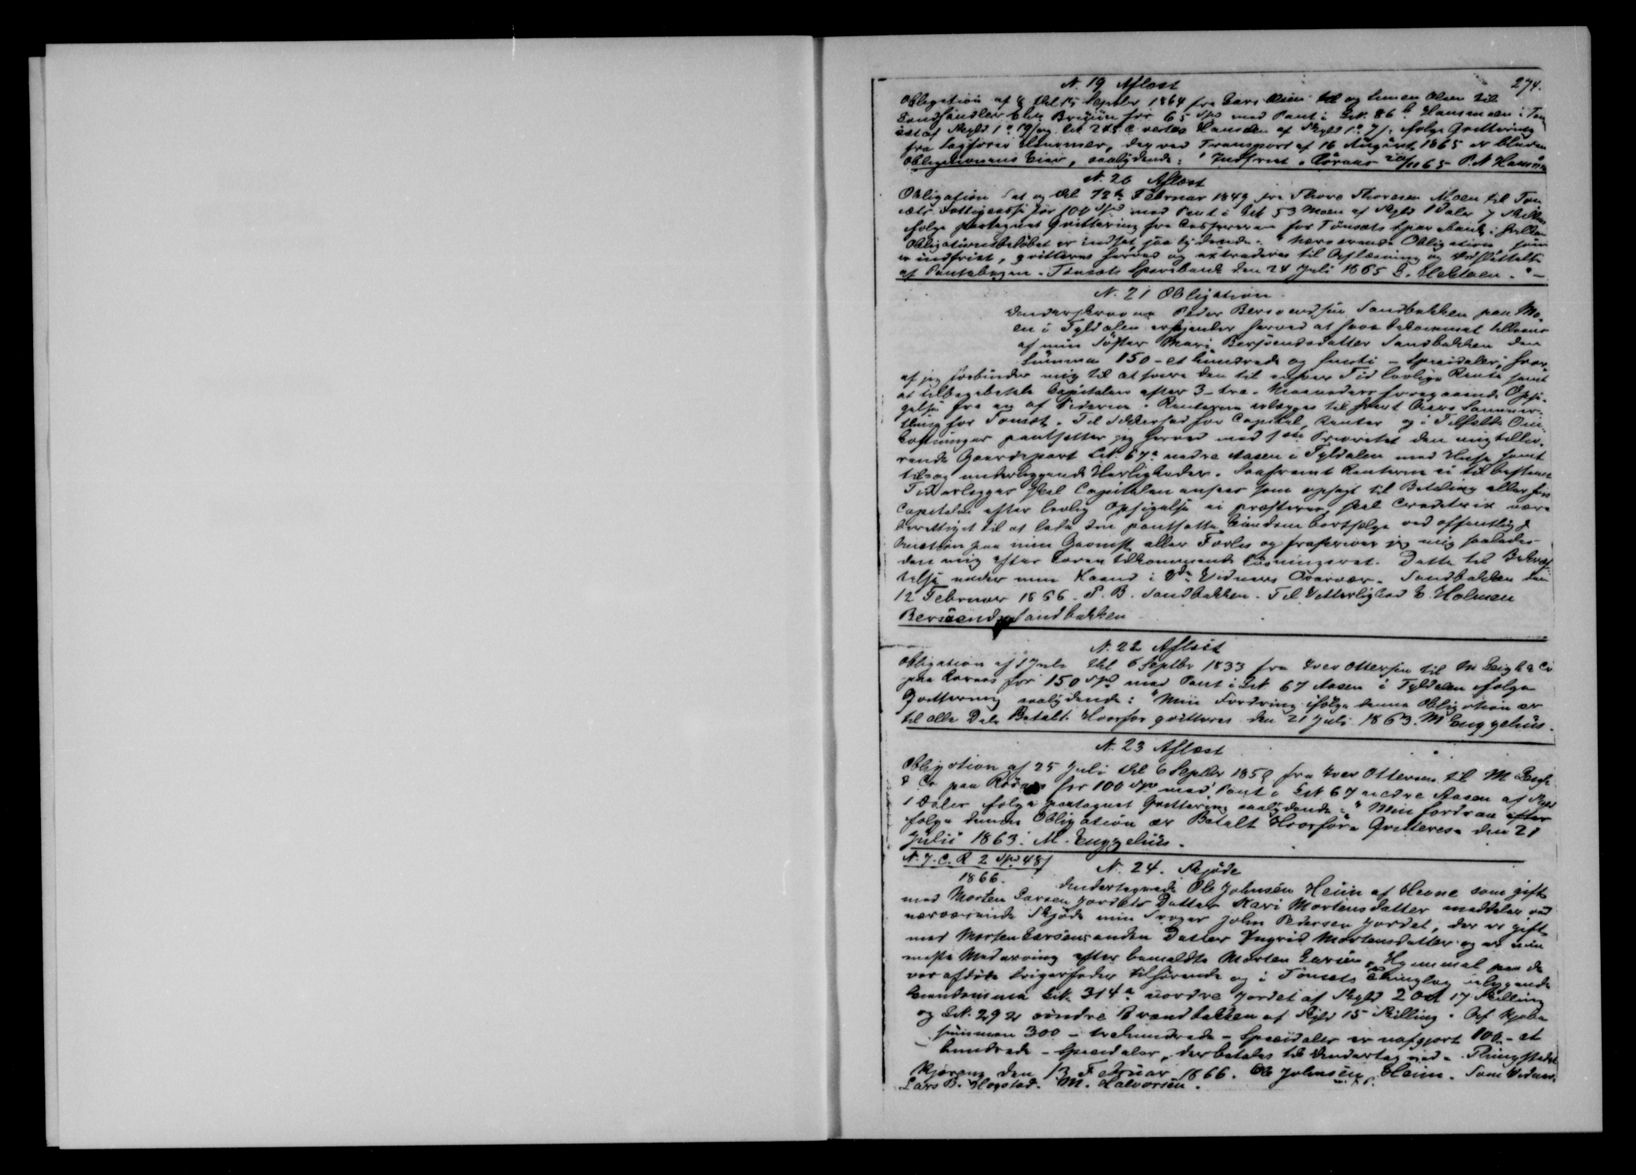 N. 19 Aflæst 274.
Obligation af 8 thl 15 Septbr 1864 fra Lars Olsen og Simen Olsen til
Landhandler for 65 Spd med Pant i Lnr. 86 b Hansmoen i
af Skyld 1 19/ og Hansmoen af Skyld 1 7/. ifølge Qvittering
fra Sagfører , der ved Transport af 16 August 1865 er bleven
Obligationens Eier, saalydende: "Indfriet. Røraas 20/11 65 P. A.
N. 20 Aflæst
Obligation dat og thl 12te Februar 1849 fra Thore Thoresen Moen til
Fattigcasse for 100 Spd med Pant i Lnr 53 Moen af Skyld 1 Daler 7 Skilling
ifølge paategnet Qvittering fra Casserer for Tønsets Sparebank, i hvilken
Obligationsbeløbet er indsat, saa lydende: "Nærværende Obligation, som
er indfriet, qvitteres herved og extraderes til Aflæsning og Udslettelse
af Pantebogen. Tønsets Sparebank den 24 Juli 1865 . "—
N. 21 Obligation
Undertegnede Peder Bersvendsen Sandbakken paa
en i Tyldalen erkjender herved at have bekommet tillaans
af min Søster Mari Bersvendsdatter Sandbakken den
Summa 150 - et hundrede og femti - Speciedaler, hvor
af jeg forbinder mig til at svare den til enhver Tid lovlige Rente samt
at tilbagebetale Capitalen efter 3 - tre - Maaneders foregaaende Opsi-
gelse fra en af Siderne. Renterne erlægges til hvert Aars
ting for Tønset. Til Sikkerhed for Capital, Renter og i Tilfælde Om-
kostninger pantsætter jeg herved med 1ste Prioritet den mig tilhø-
rende Gaardepart Lnr 67a nedre Aasen i Tyldalen med Huse samt
til og underliggende Herligheder. Saafremt Renterne ei til bestemt
Tid erlægges skal Capitalen ansees som opsagt til Betaling eller hvis
Capitalen efter lovlig Opsigelse ei præsteres skal Creditrix være
berettiget til at lade den pantsatte Eiendom bortsælge ved offentlig
Auction paa min Gevinst eller Forlis og fraskriver jeg mig saaledes
den mig efter Loven tilkommende Løsningsret. Dette til Bekræf-
telse under min Haand i 2de Vidners Overvær. Sandbakken den
12 Februar 1866. P. B. Sandbakken. Til Vitterlighed E. Holmen
Bersvend Sandbakken
N. 22 Aflæst
Obligation af 1 Juli thl 6 Septbr 1833 fra Iver Ottersen til M Engh & Co
paa Roraas for 150 Spd med Pant i Lnr 67 Aasen i Tyldalen ifølge
Qvittering saalydende: "Min Fordring ifølge denne Obligation er
til alle Dele Betalt. Hvorfor qvitteres den 21 Juli 1863. M Engzelius.
N. 23 Aflæst
Obligation af 25 Juli thl 6 Septbr 1850 fra Iver Ottersen til M Engh
& Co paa Røraas for 100 Spd med Pant i Lnr 67 nedre Aasen af Skyld
1 Daler ifølge paategnet Qvittering saalydende: "Min fordran efter
følge denne Obligation er Betalt Hvorføre Qvitteres den 21
Julii 1863. M. Engzelius.
N. 7. C. R 2 Spd 48 / N. 24. Skjøde
1866.
Undertegnede Ole Johnsen Heim af Hevne som gift
med Morten Larsen Jordets Datter Kari Mortensdatter meddeler ved
nærværende Skjøde min Svoger John Pedersen Jordet, der er gift
med Morten Larsens anden Datter Ingrid Mortensdatter og er min
neste Medarving efter bemeldte Morten Larsen, Hjemmel paa de
vor afdøde Svigerfader tilhørende og i Tønsets Thinglag beliggende
Eiendomme Lnr. 314a nordre Jordet af Skyld 2 Ort 17 Skilling
og Lnr. 292 søndre Brændbakken af Skyld 15 Skilling. Af Kjøbe
summen 300 - trehundrede - Speciedaler er uafgjort 100 - et
hundrede - Speciedaler, der betales til Undertegnede. Thingstedet
den 13 Februar 1866. Ole Johnsen Heim. Som Vidner.
Lars B. Hogstad. M. Halvorsen.